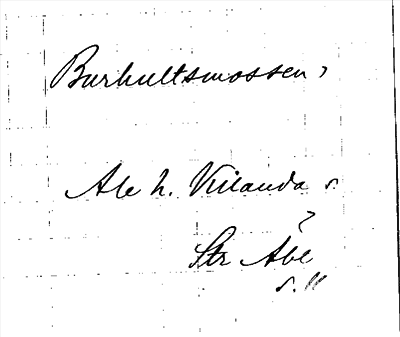 Burhultsmossen,
Ale h. Kilanda s.
Str Åbl
s. 11